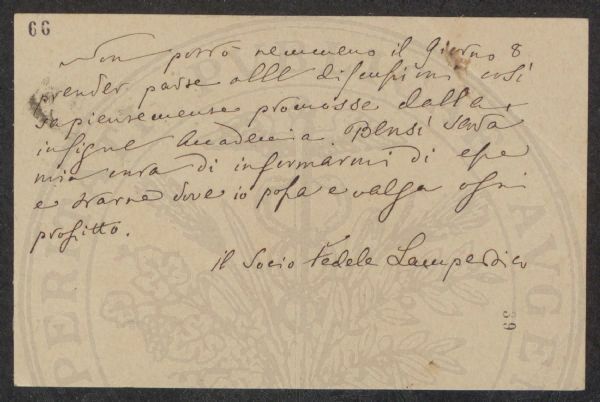 66
Non potrò nemmeno il giorno 8
prender parte alle discussioni così
sapientemente promosse dalla
insigne Accademia. Bensì sarà
mia cura di informarmi di esse
e trarne dove io possa e valga ogni
profitto.
Il Socio Fedele Lampertico
39